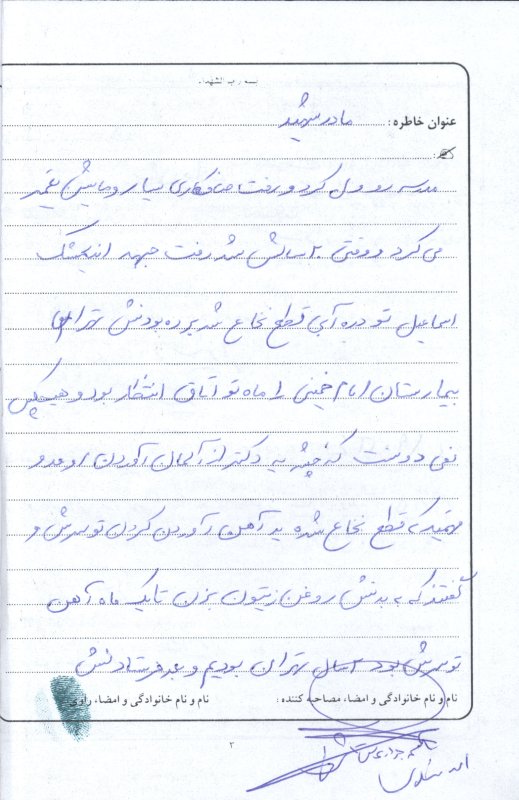 بسمه رب الشهداء
عنوان خاطره: مادر شهید
مدرسه رو ول کرد و رفت صافکاری سیار و ماشین تعمیر
می کرد و وقتی ۲۰ سالش شد رفت جبهه اندیمشک
اسماعیل تو دره آبی قطع نخاع شد برده بودنش تهران
بیمارستان امام خمینی ۱ ماه تو اتاق انتظار بود و هیچکس
نمی دونست که چشه یه دکتر از آلمان آوردن اومد و
فهمید که قطع نخاع شده یه آهن آوردن کردن تو سرش و
گفتند که به بدنش روغن زیتون بزن تا یک ماه آهن
تو سرش بود ۲ سال تهران بودیم و بعد فرستادنش
نام و نام خانوادگی و امضاء مصاحبه کننده :
نام و نام خانوادگی و امضاء راوی:
۲